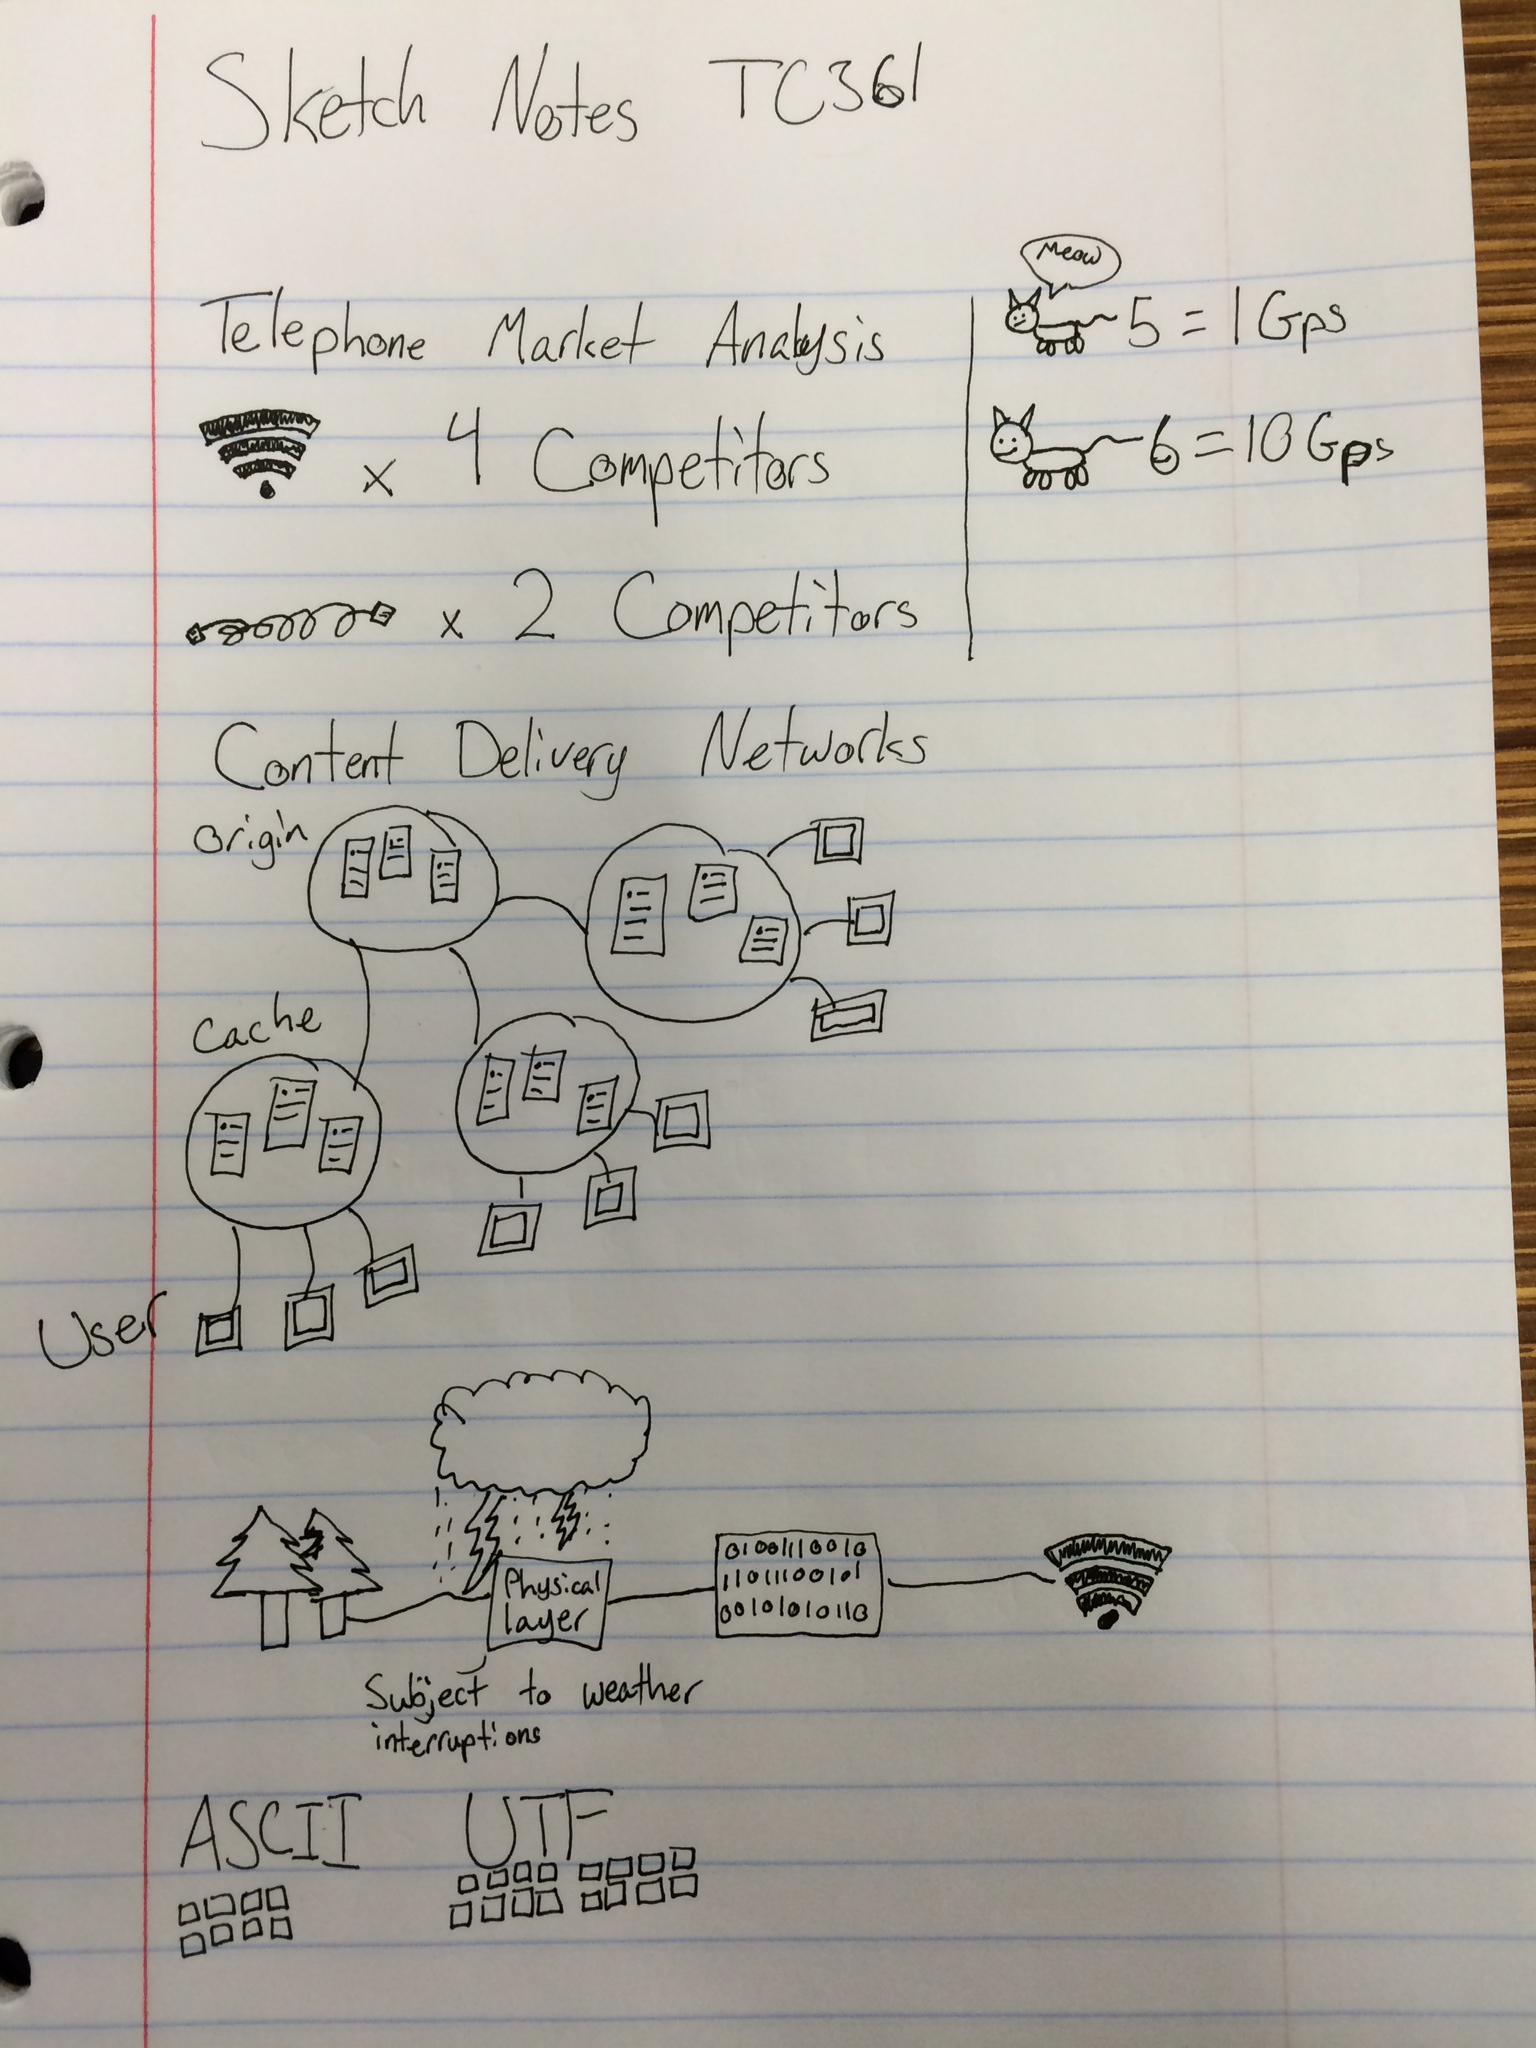 Sketch Notes TC361
Telephone Market Analysis
x 4 Competitors
x 2 Competitors
Meow
5 = 1 Gps
6 = 10 Gps
Content Delivery Networks
Origin
Cache
User
Physical
layer
01001110010
11011100101
00101010110
Subject to weather
interruptions
ASCII UTF